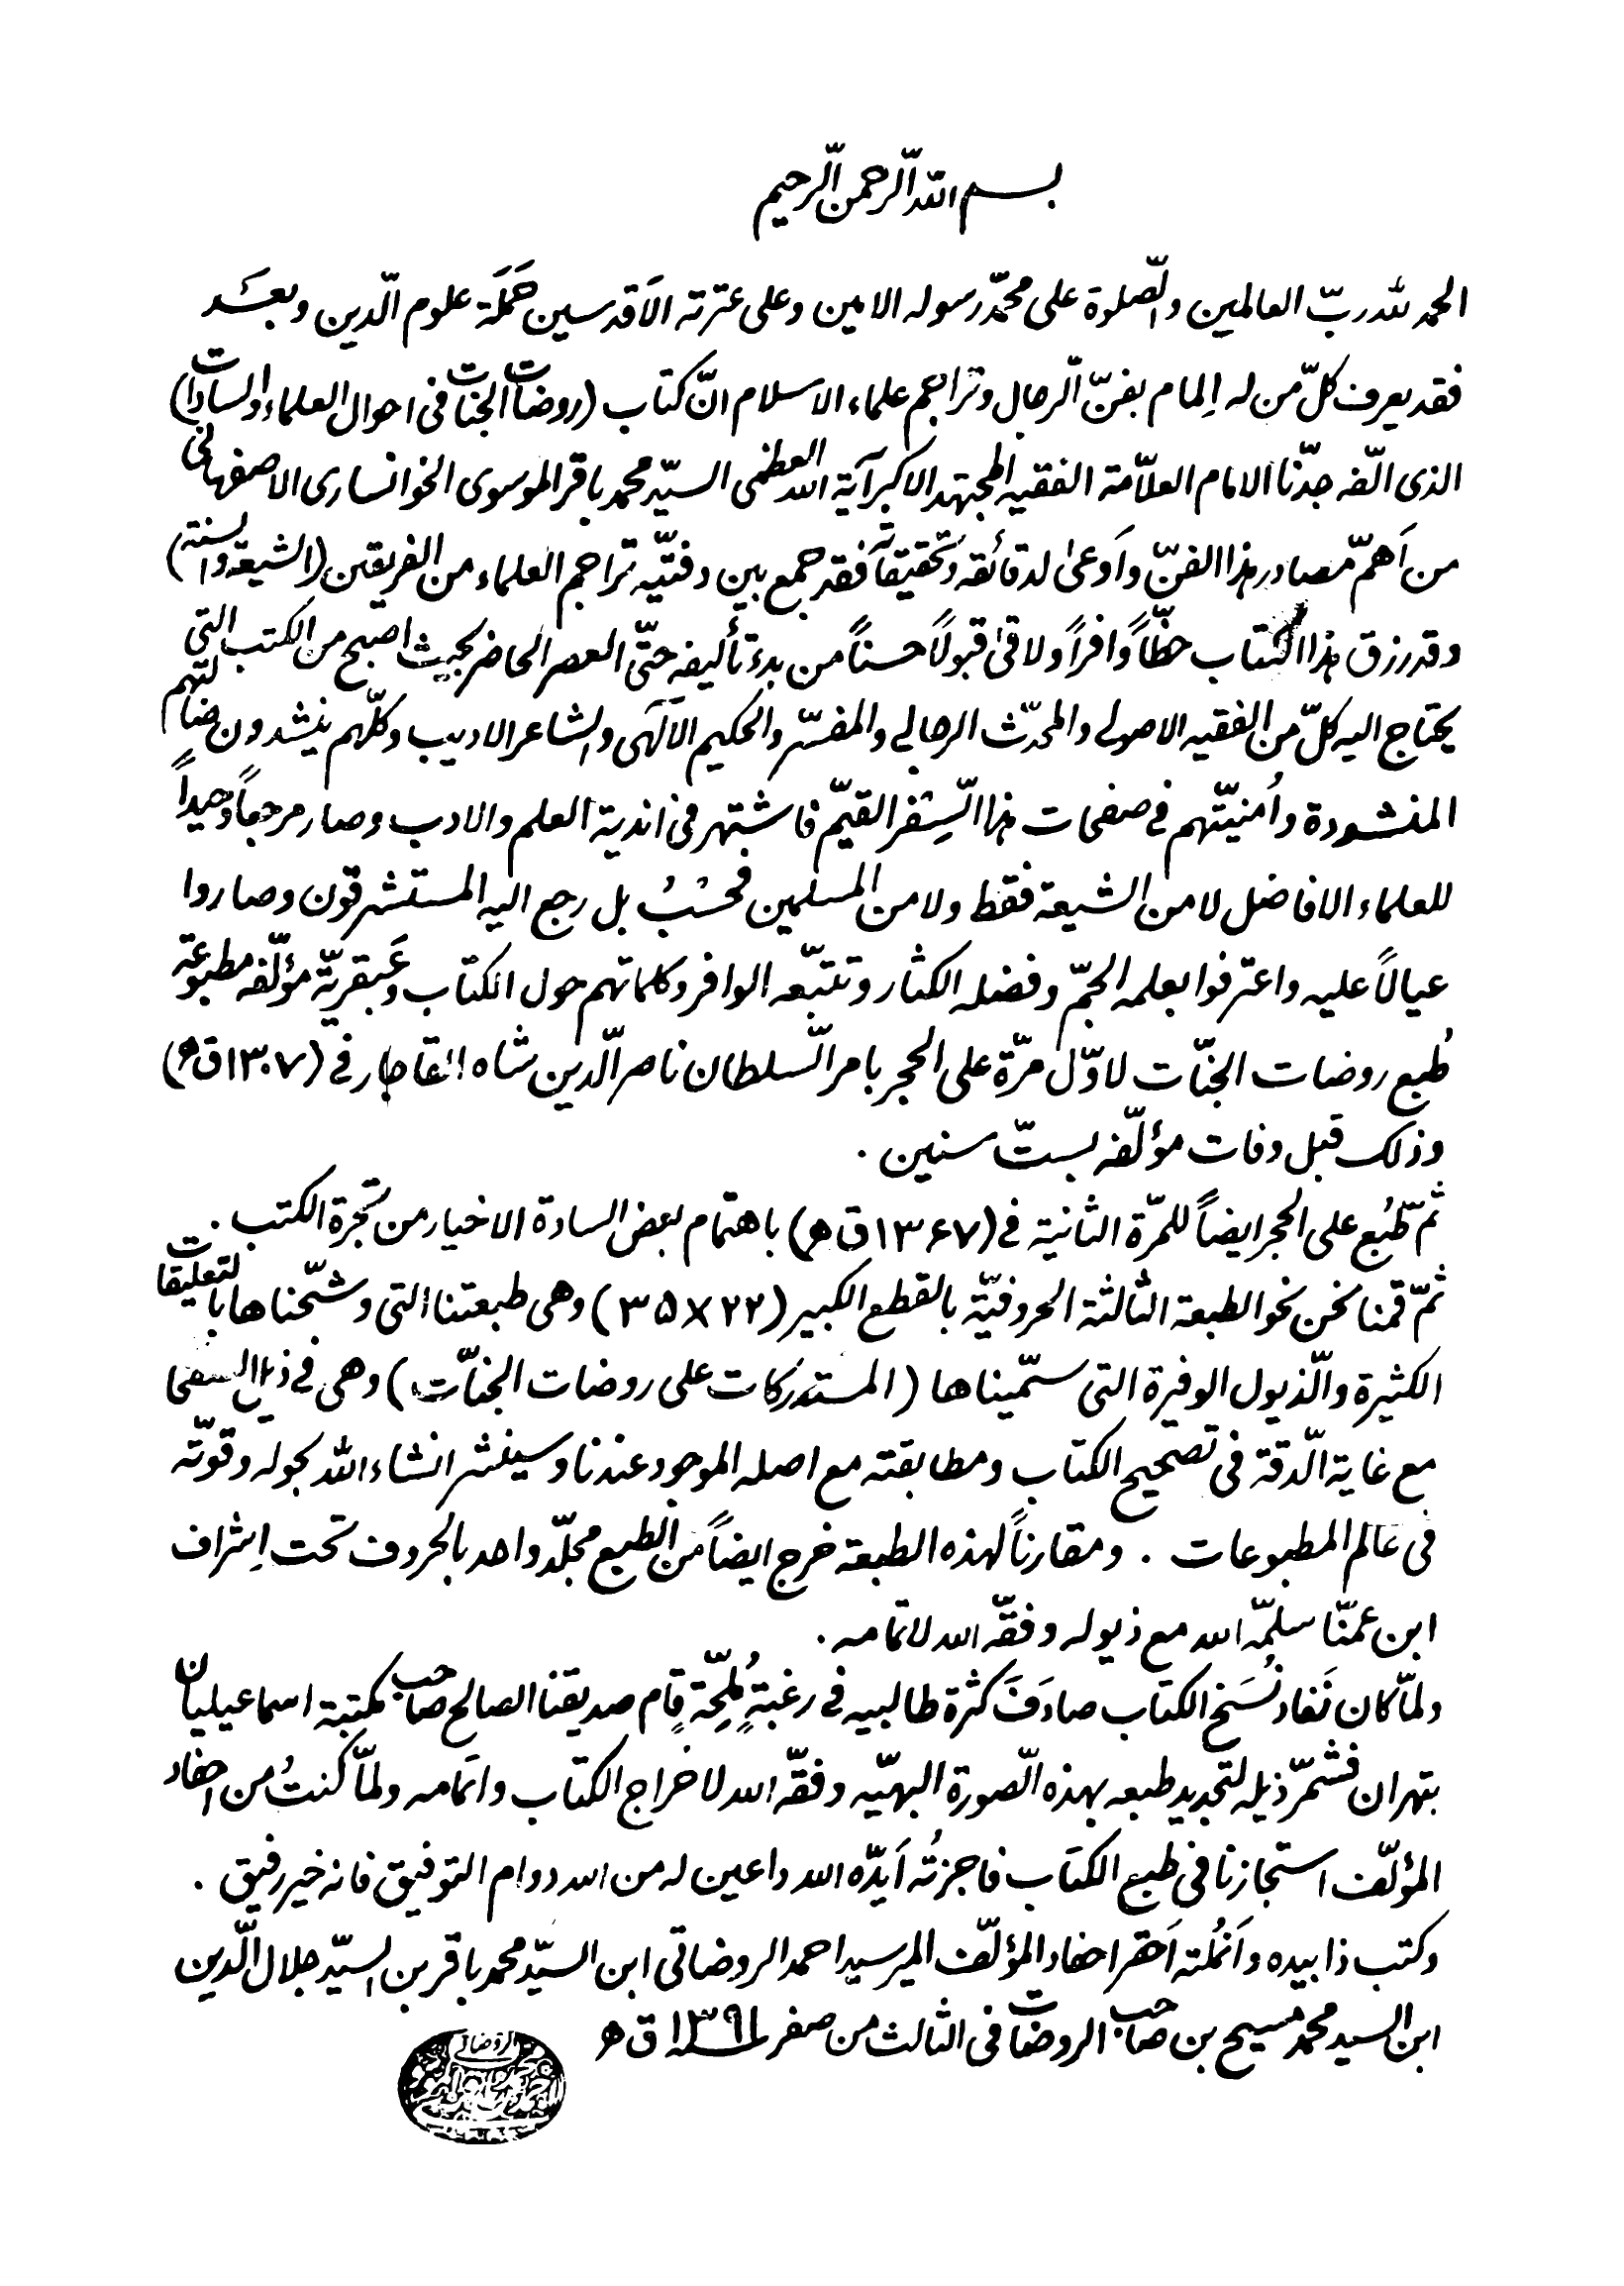 بسم الله الرّحمن الرّحيم
الحمد لله ربّ العالمين والصّلوة على محمّد رسوله الامين وعلى عترته الاَقدسين حَمَلَة علوم الّدين وبعَد
فقد يعرف كلّ من له اِلمام بفنّ الّرجال وتراجم علماء الاسلام انّ كتاب (روضات الجنات فى احوال العلماء والسادات)
الذى الّفه جدّنا الامام العلاّمة الفقيه المجتهد الاكبر آية الله العظمى السيّد محمد باقر الموسوى الخوانسارى الاصفهانى
من اَهمّ مصادر هذا الفنّ واَوعىٰ لدقائقه وتحقيقاته فقد جمع بين دفتيّه تراجم العلماء من الفريقين (الشيعة والسنة)
وقد رزق هذا الكتاب حظّاً وافراً ولاقىٰ قبولاً حسناً من بدء تأليفه حتّى العصر الحاضر بحيث اصبح من الكتب التى
يحتاج اليه كلّ من الفقيه الاصولى والمحدّث الرجالى والمفسّر والحكيم الآلَهى والشاعر الاديب وكلّهم ينشدون ضالتهم
المنشودة واُمنيّتهم فى صفحات هذا الّسِفر القيّم فاشتهر فى اندية العلم والادب وصار مرجعاً وحيداً
للعلماء الافاضل لا من الشيعة فقط ولا من المسلمين فحَسْبُ بل رجع اليه المستشرقون وصاروا
عيالاً عليه واعترفوا بعلمه الجمّ وفضله الكثار وتتبّعه الوافر وكلماتهم حول الكتاب وعَبقريّة مؤلّفه مطبوعة
طُبع روضات الجنّات لاوّل مرّة على الحجر بامر الّسلطان ناصر الّدين شاه القاجار فى (١٣٠٧ ق ه)
وذلك قبل وفات مؤلّفه بستّ سنين .
ثمّ طُبع على الحجر ايضاً للمرّة الثانية فى (١٣۶٧ ق ه) باهتمام بعض السادة الاخيار من تجرة الكتب .
ثمّ قمنا نحن نحو الطبعة الثالثة الحروفيّة بالقطع الكبير (٢٢ × ٣۵) وهى طبعتنا التى وشّحناها بالتعليقات
الكثيرة والّذيول الوفيرة التى سمّيناها (المستدركات على روضات الجنّات) وهى فى ذيل الصفحات
مع غاية الّدقة فى تصحيح الكتاب ومطابقته مع اصله الموجود عندنا وسينشر انشاء الله بحوله وقوّته
فى عالم المطبوعات . ومقارناً لهذه الطبعة خرج ايضاً من الطبع مجلّد واحد بالحروف تحت اِشراف
ابن عمّنا سلمّه الله مع ذيوله وفقّه الله لاتمامه .
ولمّا كان نَفاد نُسَخ الكتاب صادَفَ كثرة طالبيه فى رغبةٍ مُلِحّةٍ قام صديقنا الصالح صاحب مكتبة اسماعيليان
بتهران فشمّر ذيله لتجديد طبعه بهذه الّصورة البهيّه وفقّه الله لاخراج الكتاب واتمامه ولمّا كنتُ من احفاد
المؤلّف استجازنا فى طبع الكتاب فاجزتُه اَيدّه الله داعين له من الله دوام التوفيق فانه خير رفيق .
وكتب ذا بيده واَنمُلته اَحقر احفاد المؤلّف المير سيد احمد الروضاتى ابن السيّد محمد باقر بن السيّد جلال الّدين
ابن السيد محمد مسيح بن صاحب الروضات فى الثالث من صفر ١٣٩١ ق ه
الروضاتى